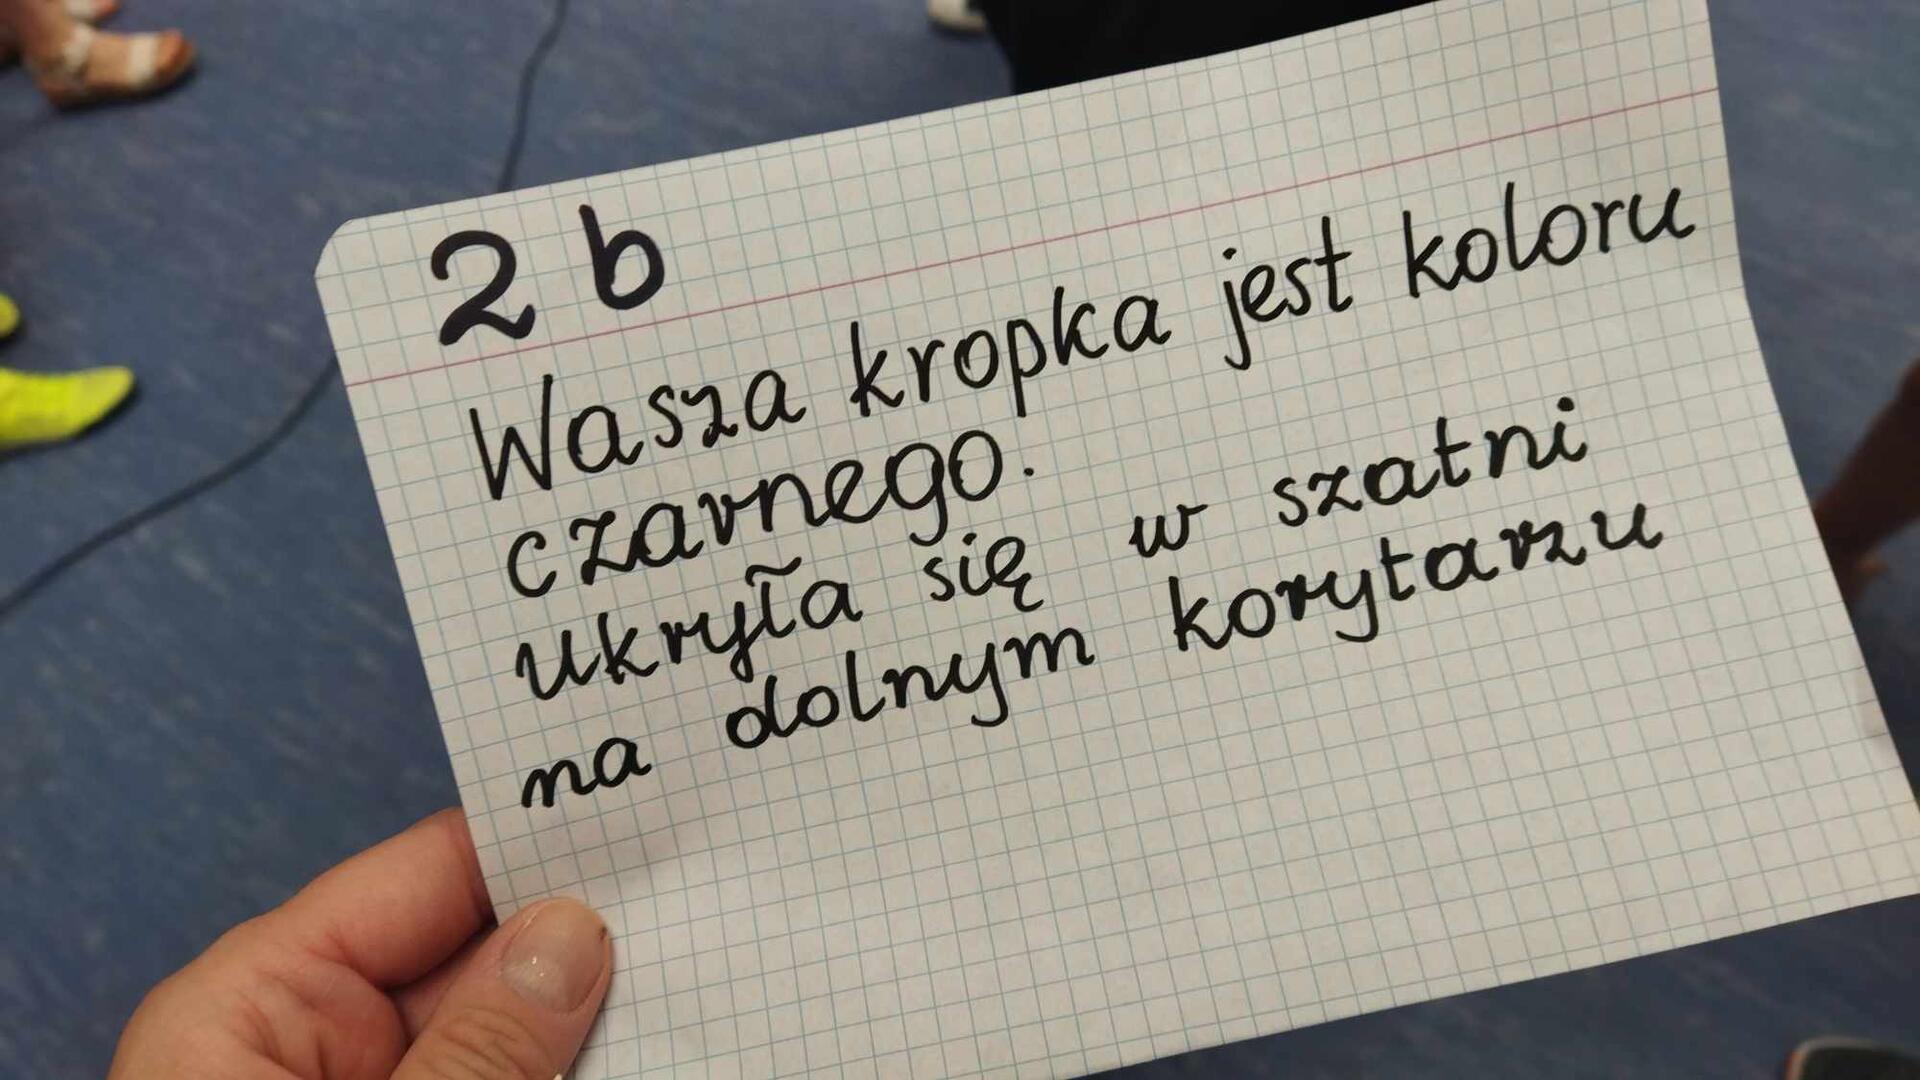 2 b
Wasza kropka jest koloru
czarnego.
ukryła się w szatni
na dolnym korytarzu